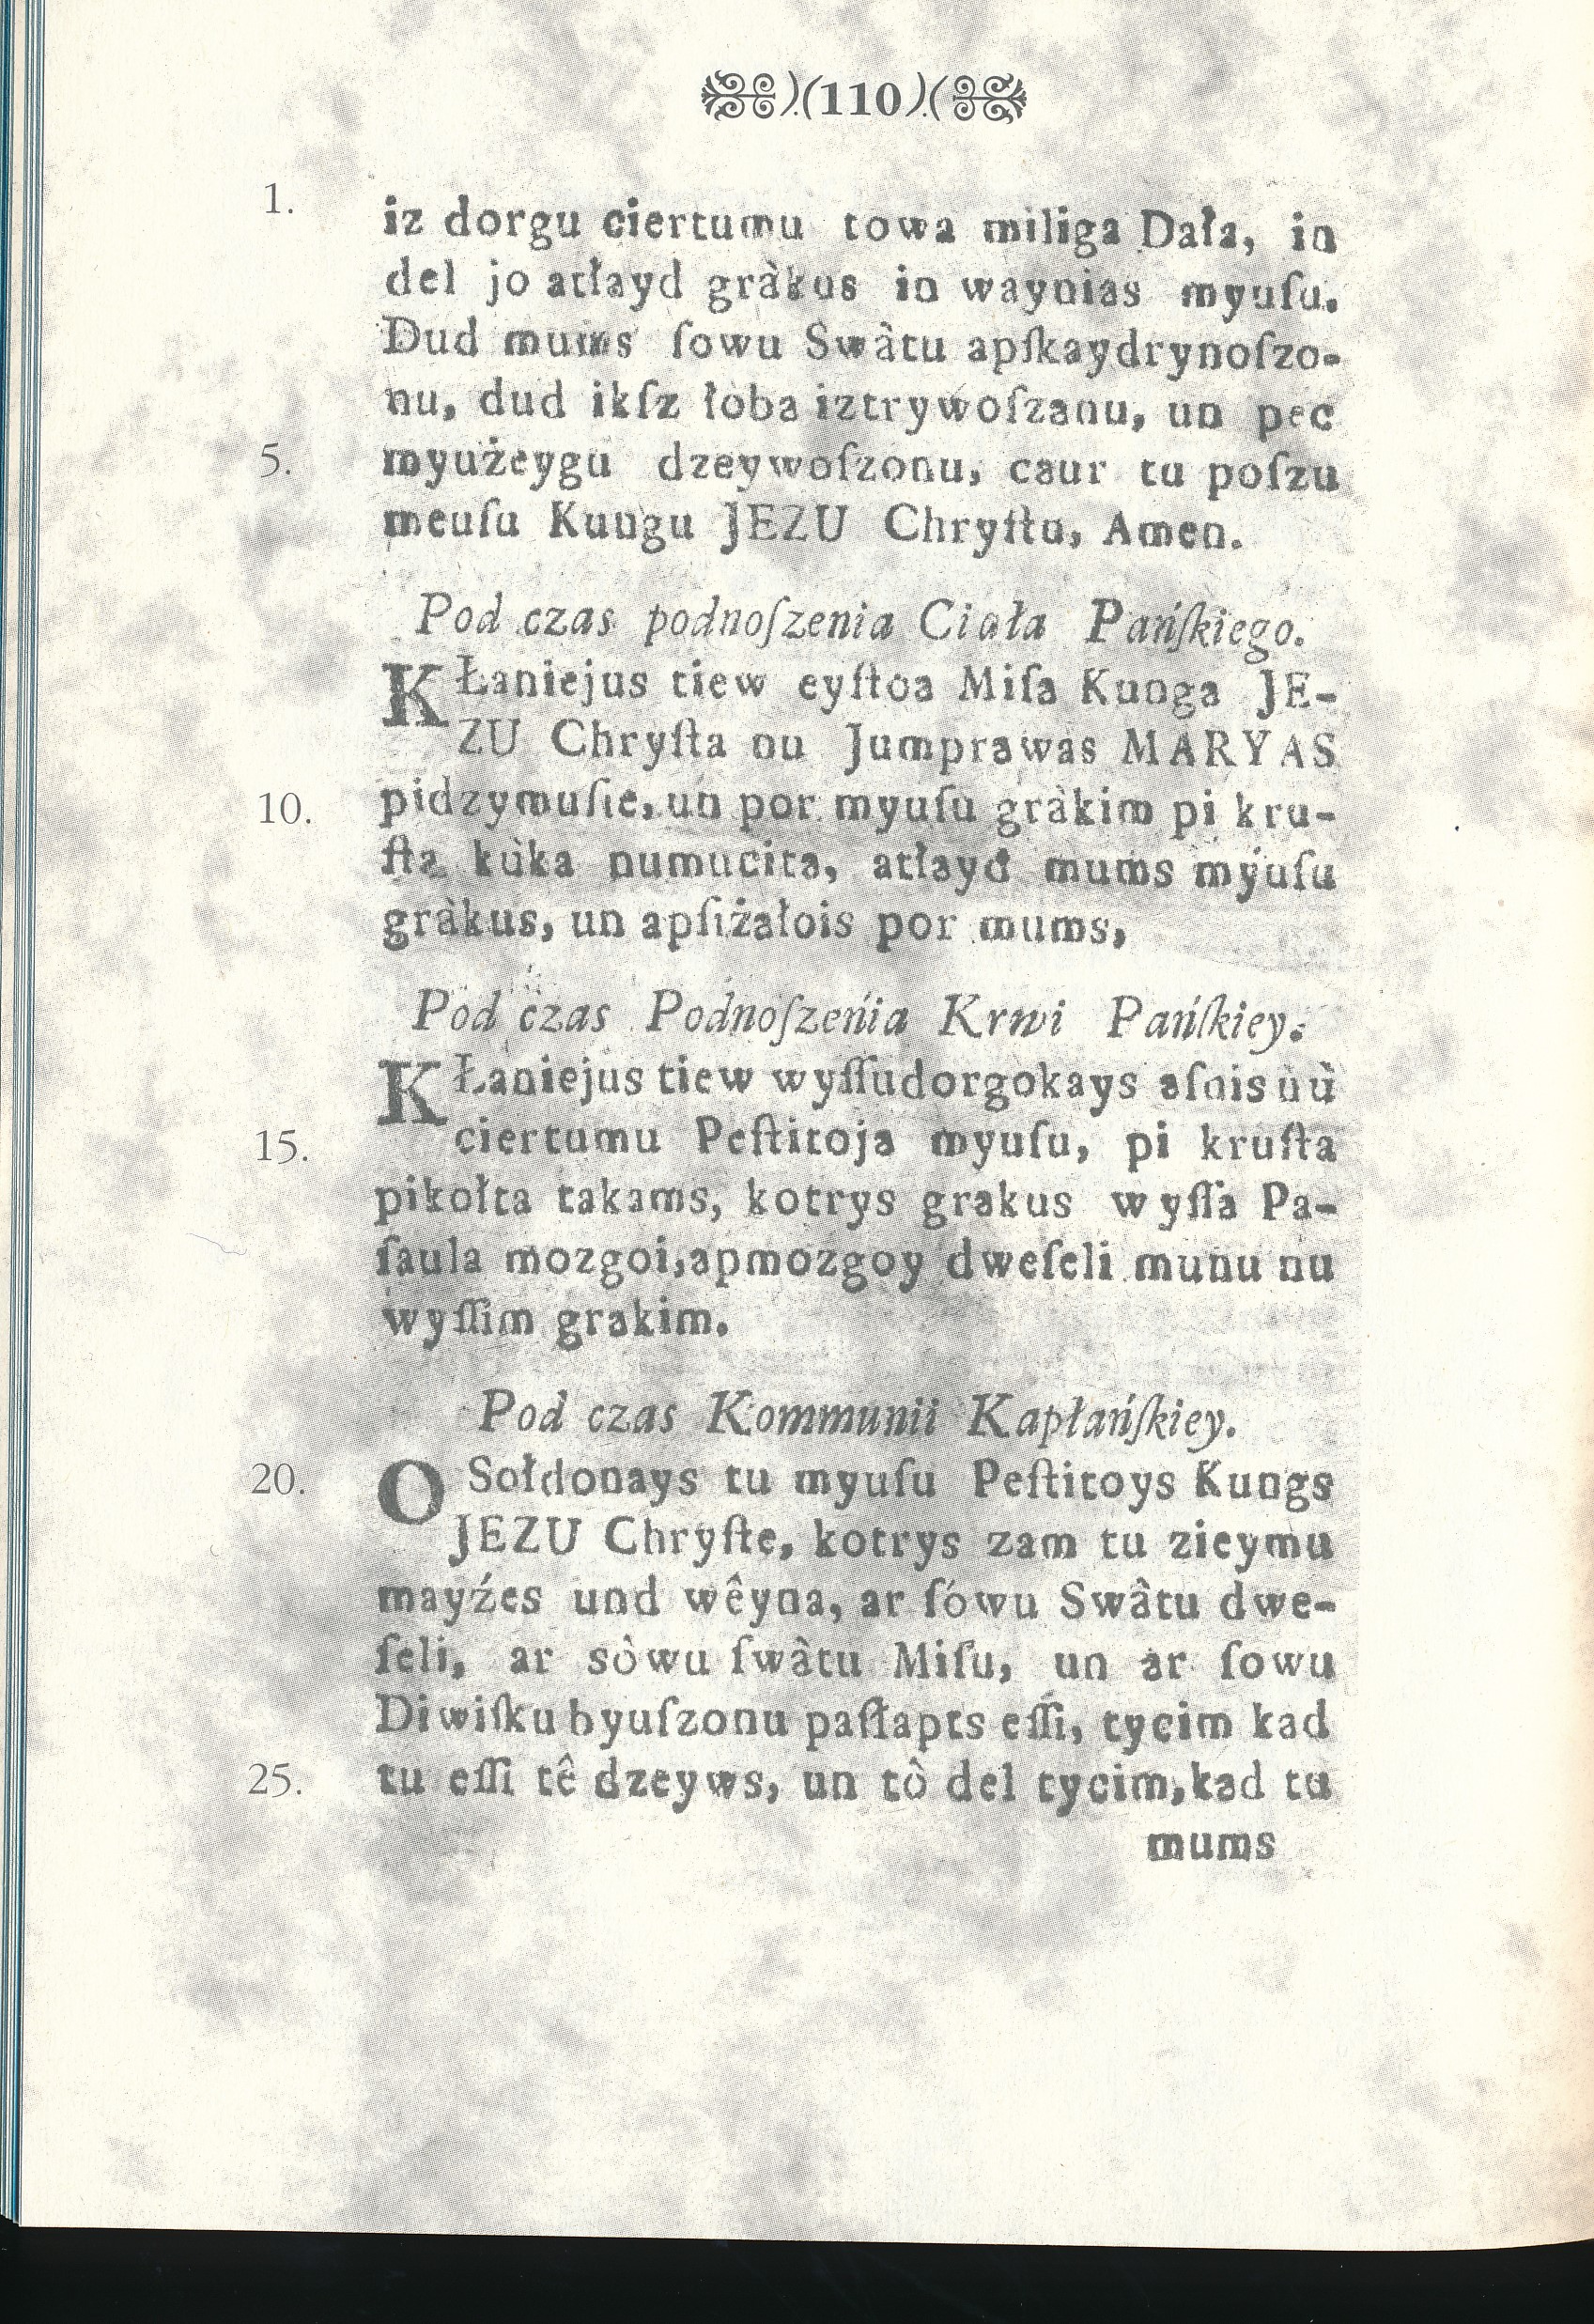 )(110)(
1. iz dorgu ciertumu towa miliga Dała, in
del jo atłayd gràkus in waynias myuſu.
Dud mums ſowu Swâtu apſkaydrynoſzo-
nu, dud ikſz łoba iztrywoſzanu, un pec
5. myużeygu dzeywoſzonu, caur tu poſzu
meuſu Kungu JEZU Chryſtu, Amen.
Pod czas podnoſzenia Ciała Pańſkiego.
KŁaniejus tiew eyſtoa Miſa Kunga JE-
ZU Chryſta nu Jumprawas MARYAS
10. pidzymuſie, un por myuſu gràkim pi kru-
ſta kùka numucita, atłayd mums myuſu
gràkus, un apſiżałois por mums,
Pod czas Podnoſzeńia Krwi Pańſkiey.
KŁaniejus tiew wyſſudorgokays aſnis nù
15. ciertumu Peſtitoja myuſu, pi kruſta
pikołta takams, kotrys grakus wyſſa Pa-
ſaula mozgoi, apmozgoy dweſeli munu nu
wyſſim grakim.
Pod czas Kommunii Kapłańſkiey.
20. O Sołdonays tu myuſu Peſtitoys Kungs
JEZU Chryſte, kotrys zam tu zieymu
mayźes und wêyna, ar ſówu Swâtu dwe-
ſeli, ar sòwu ſwâtu Miſu, un ar ſowu
Diwiſku byuſzonu paſłapts eſſi, tycim kad
25. tu eſſi tê dzeyws, un tô del tycim, kad tu
mums